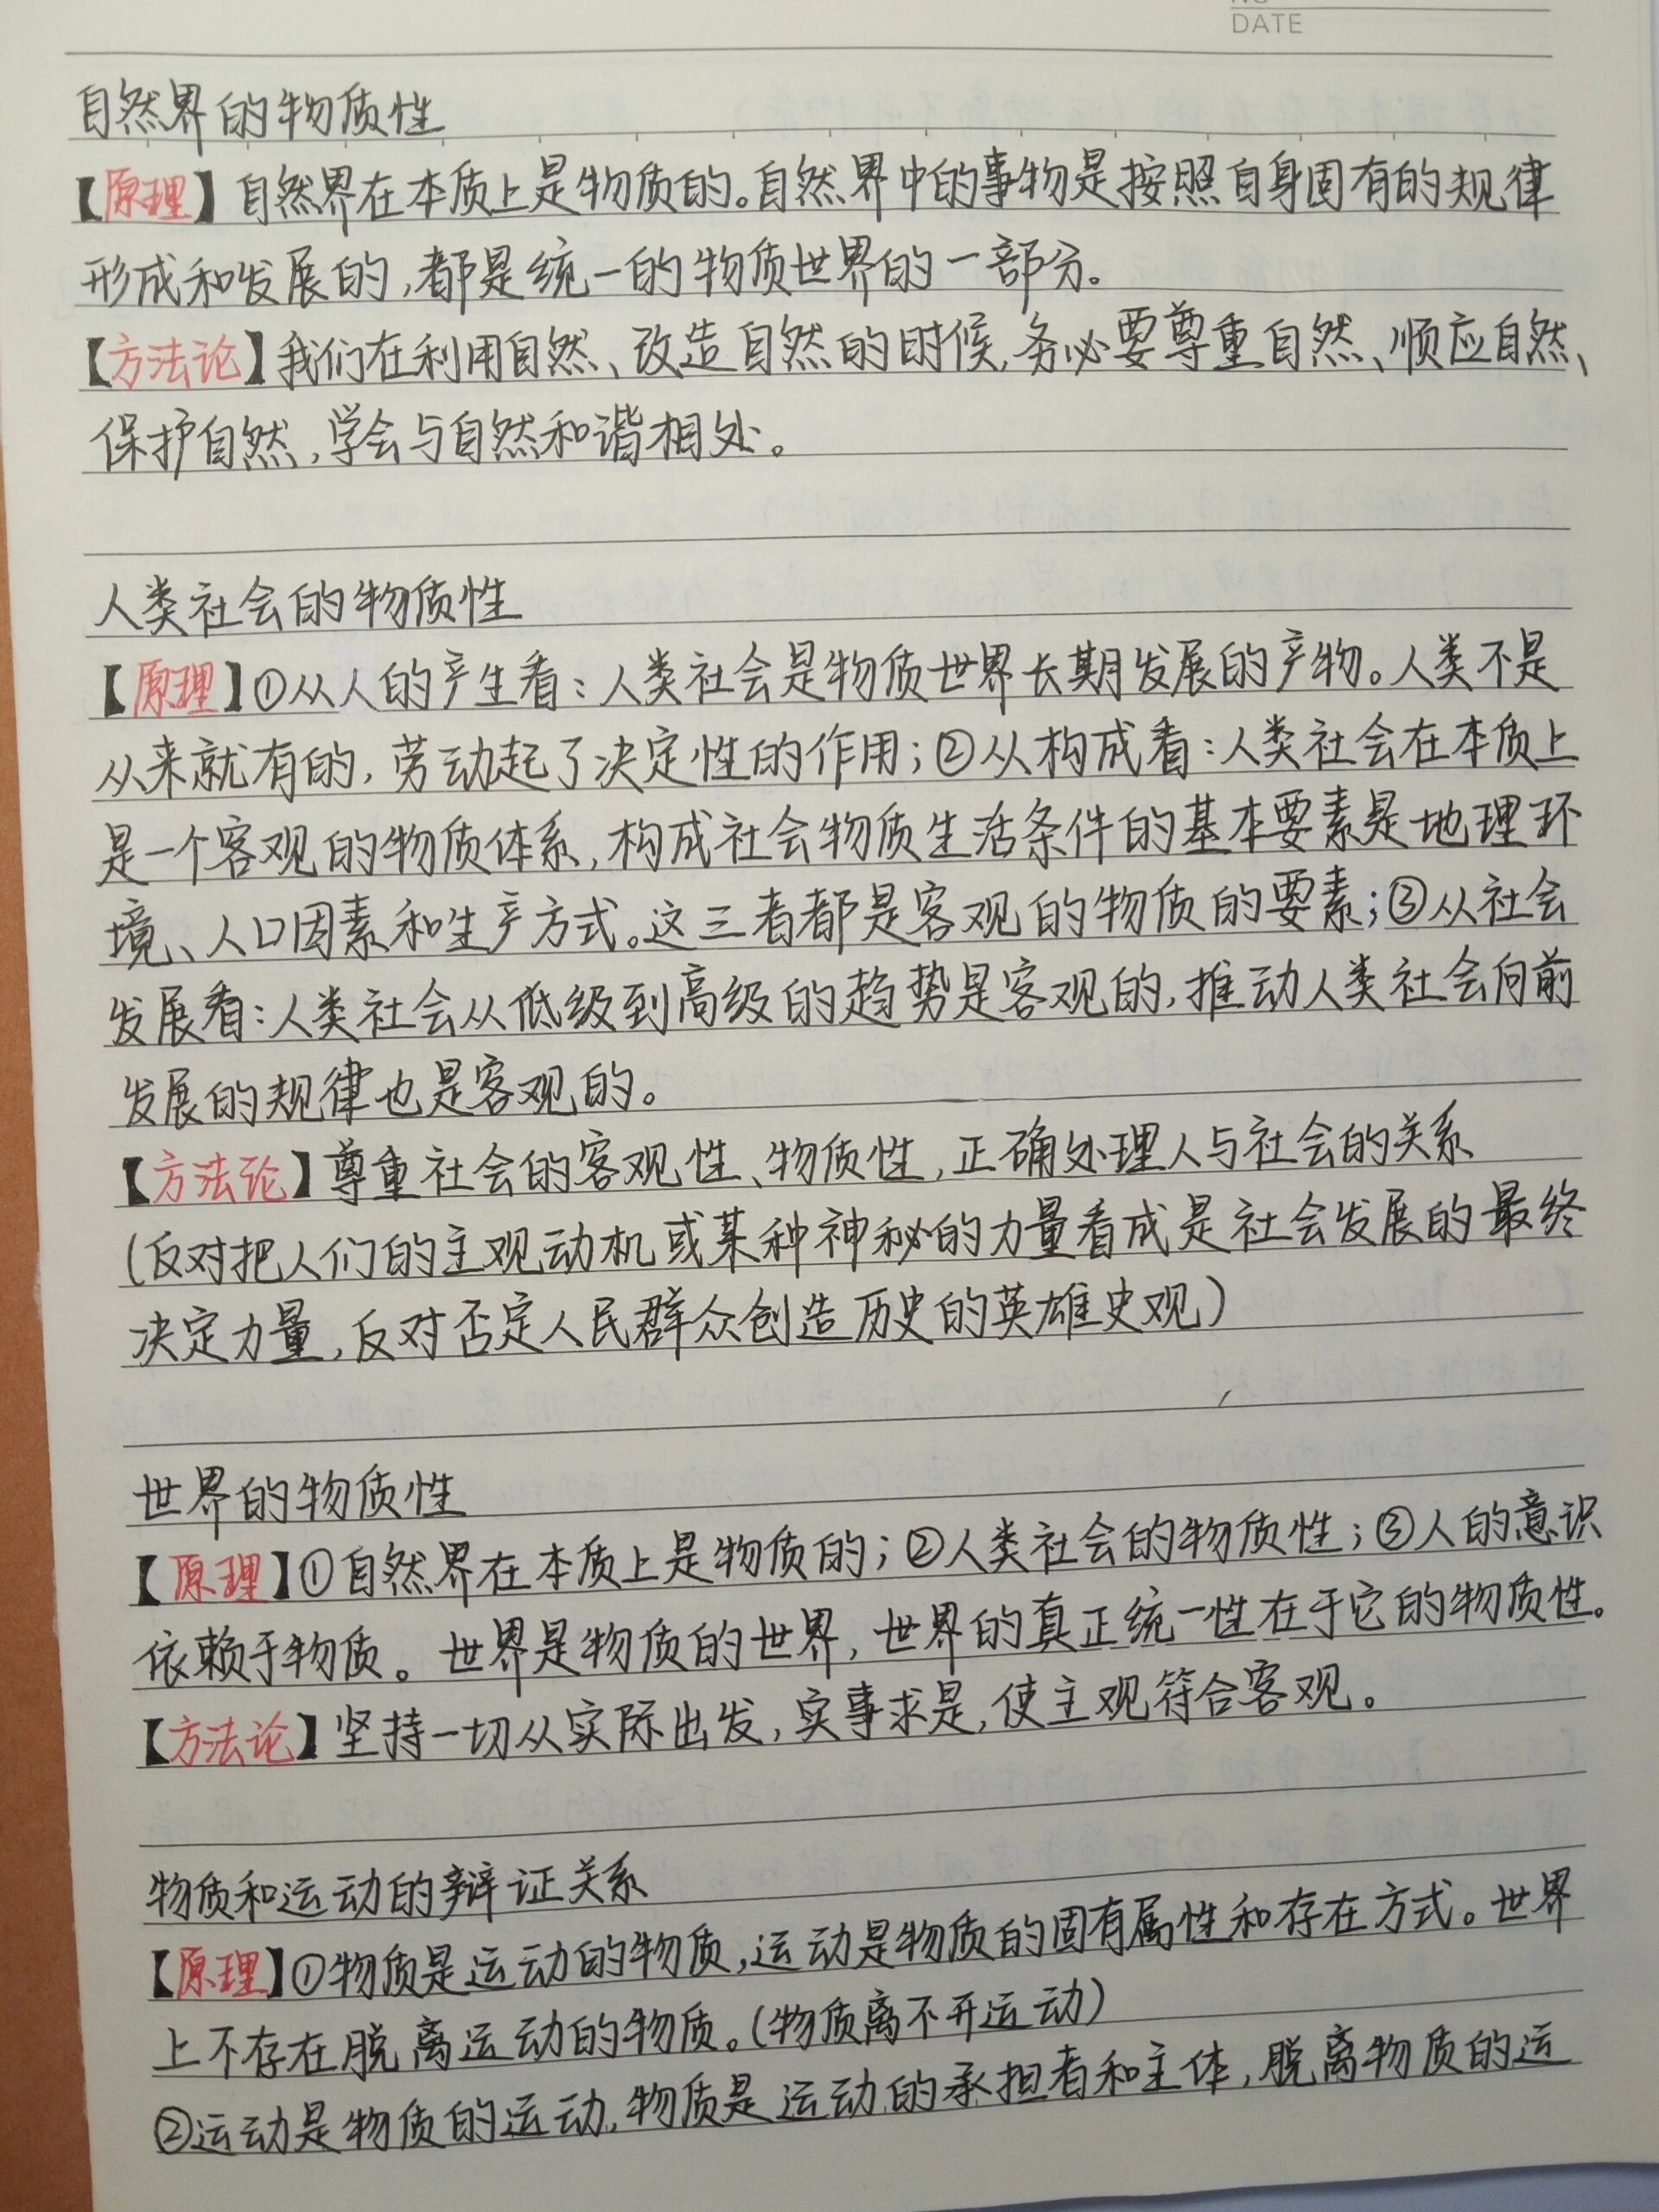 DATE
自然界的物质性
【原理】自然界在本质上是物质的。自然界中的事物是按照自身固有的规律
形成和发展的,都是统一的物质世界的一部分。
【方法论】我们在利用自然、改造自然的时候,务必要尊重自然、顺应自然、
保护自然,学会与自然和谐相处。
人类社会的物质性
【原理】①从人的产生看:人类社会是物质世界长期发展的产物。人类不是
从来就有的,劳动起了决定性的作用;②从构成看:人类社会在本质上
是一个客观的物质体系,构成社会物质生活条件的基本要素是地理环
境、人口因素和生产方式。这三者都是客观的物质的要素;③从社会
发展看:人类社会从低级到高级的趋势是客观的,推动人类社会向前
发展的规律也是客观的。
【方法论】尊重社会的客观性、物质性,正确处理人与社会的关系
(反对把人们的主观动机或某种神秘的力量看成是社会发展的最终
决定力量,反对否定人民群众创造历史的英雄史观)
世界的物质性
【原理】①自然界在本质上是物质的;②人类社会的物质性;③人的意识
依赖于物质。世界是物质的世界,世界的真正统一性在于它的物质性。
【方法论】坚持一切从实际出发,实事求是,使主观符合客观。
物质和运动的辩证关系
【原理】①物质是运动的物质,运动是物质的固有属性和存在方式。世界
上不存在脱离运动的物质。(物质离不开运动)
②运动是物质的运动,物质是运动的承担者和主体,脱离物质的运